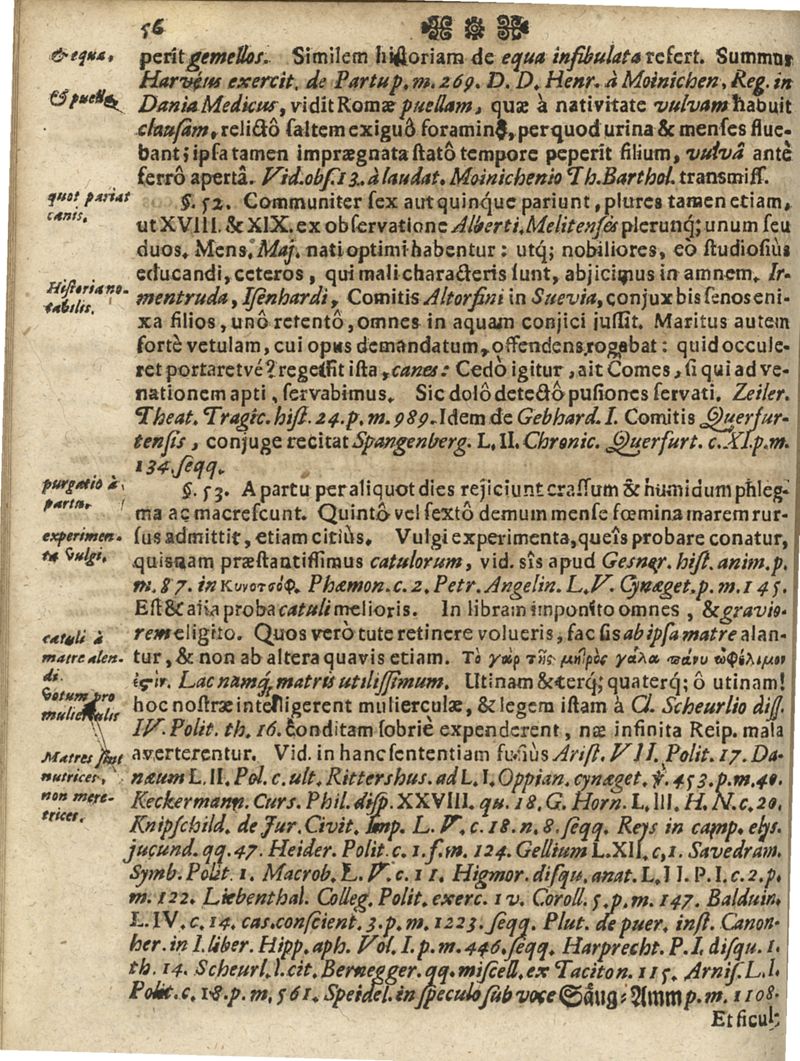 56
& equa,
perit gemellos. Similem historiam de equa infibulata refert. Summus
Harvéus exercit. de Partu p. m. 269. D. D. Henr. à Moinichen, Reg. in
& puella
Dania Medicus, vidit Romæ puellam, quæ à nativitate vulvam habuit
clausam, relictô saltem exiguô foramine, per quod urina & menses flue-
bant; ipsa tamen imprægnata statô tempore peperit filium, vulvâ antè
ferrô apertâ. Vid. obs. 13. à laudat. Moinichenio Th. Barthol. transmiss.
quot pariat
canis.
§. 52. Communiter sex aut quinque pariunt, plures tamen etiam,
ut XVIII. & XIX. ex observatione Alberti. Melitenses plerunq; unum seu
duos. Mens. Maj. nati optimi habentur: utq; nobiliores, eò studiosiùs
educandi, ceteros, qui mali characteris sunt, abjicimus in amnem. Ir-
Historia no-
tabilis.
mentruda, Isenhardi, Comitis Altorfini in Suevia, conjux bis senos eni-
xa filios, unô retentô, omnes in aquam conjici jussit. Maritus autem
fortè vetulam, cui opus demandatum, offendens, rogabat: quid occule-
ret portaretvé? regessit ista, canes: Cedò igitur, ait Comes, si qui ad ve-
nationem apti, servabimus. Sic dolô detectô pusiones servati. Zeiler.
Theat. Tragic. hist. 24. p. m. 989. Idem de Gebhard. I. Comitis Querfur-
tensis, conjuge recitat Spangenberg. L. II. Chronic. Querfurt. c. XI. p. m.
134. seqq.
purgatio à
partu.
§. 53. A partu per aliquot dies rejiciunt crassum & humidum phleg-
ma ac macrescunt. Quintô vel sextô demum mense fœmina marem rur-
experimen-
ta Vulgi.
sus admittit, etiam citiùs. Vulgi experimenta, queîs probare conatur,
quisnam præstantissimus catulorum, vid. sîs apud Gesner. hist. anim. p.
m. 87. in Κυνοτσόφ. Phæmon. c. 2. Petr. Angelin. L. V. Cynæget. p. m. 145.
Est & alia proba catuli melioris. In libram imponito omnes, & gravio-
rem eligito. Quos verò tute retinere volueris, fac sis ab ipsa matre alan-
catuli à
matre alen-
di.
tur, & non ab altera quavis etiam. Τὸ γὰρ τῆς μητρὸς γάλα πάνυ ὠφέλιμον
ἐςίν. Lac namq; matris utilissimum. Utinam & terq; quaterq; ô utinam!
Votum pro
mulierculis
hoc nostræ intelligerent mulierculæ, & legem istam à Cl. Scheurlio diss.
IV. Polit. th. 16. conditam sobriè expenderent, næ infinita Reip. mala
Matres sint
nutrices,
non mere-
trices.
averterentur. Vid. in hanc sententiam fusiùs Arist. VII. Polit. 17. Da-
næum L. II. Pol. c. ult. Rittershus. ad L. I. Oppian. cynæget. ℣. 453. p. m. 40.
Keckermann. Curs. Phil. disp. XXVIII. qu. 18. G. Horn. L. III. H. N. c. 20.
Knipschild. de Jur. Civit. Imp. L. V. c. 18. n. 8. seqq. Reys in camp. elys.
jucund. qq. 47. Heider. Polit. c. 1. f. m. 124. Gellium L. XII. c, 1. Savedram.
Symb. Polit. 1. Macrob. L. V. c. 11. Higmor. disqu. anat. L. II. P. I. c. 2. p.
m. 122. Liebenthal. Colleg. Polit. exerc. 1v. Coroll. 5. p. m. 147. Balduin.
L. IV. c. 14. cas. conscient. 3. p. m. 1223. seqq. Plut. de puer. inst. Canon-
her. in l. liber. Hipp. aph. Vol. I. p. m. 446. seqq. Harprecht. P. I. disqu. 1.
th. 14. Scheurl. l. cit. Bernegger. qq. miscell. ex Taciton. 115. Arnis. L. I.
Polit. c. 18. p. m. 561. Speidel. in speculo sub voce Säug-Amm p. m. 1108.
Et sicut